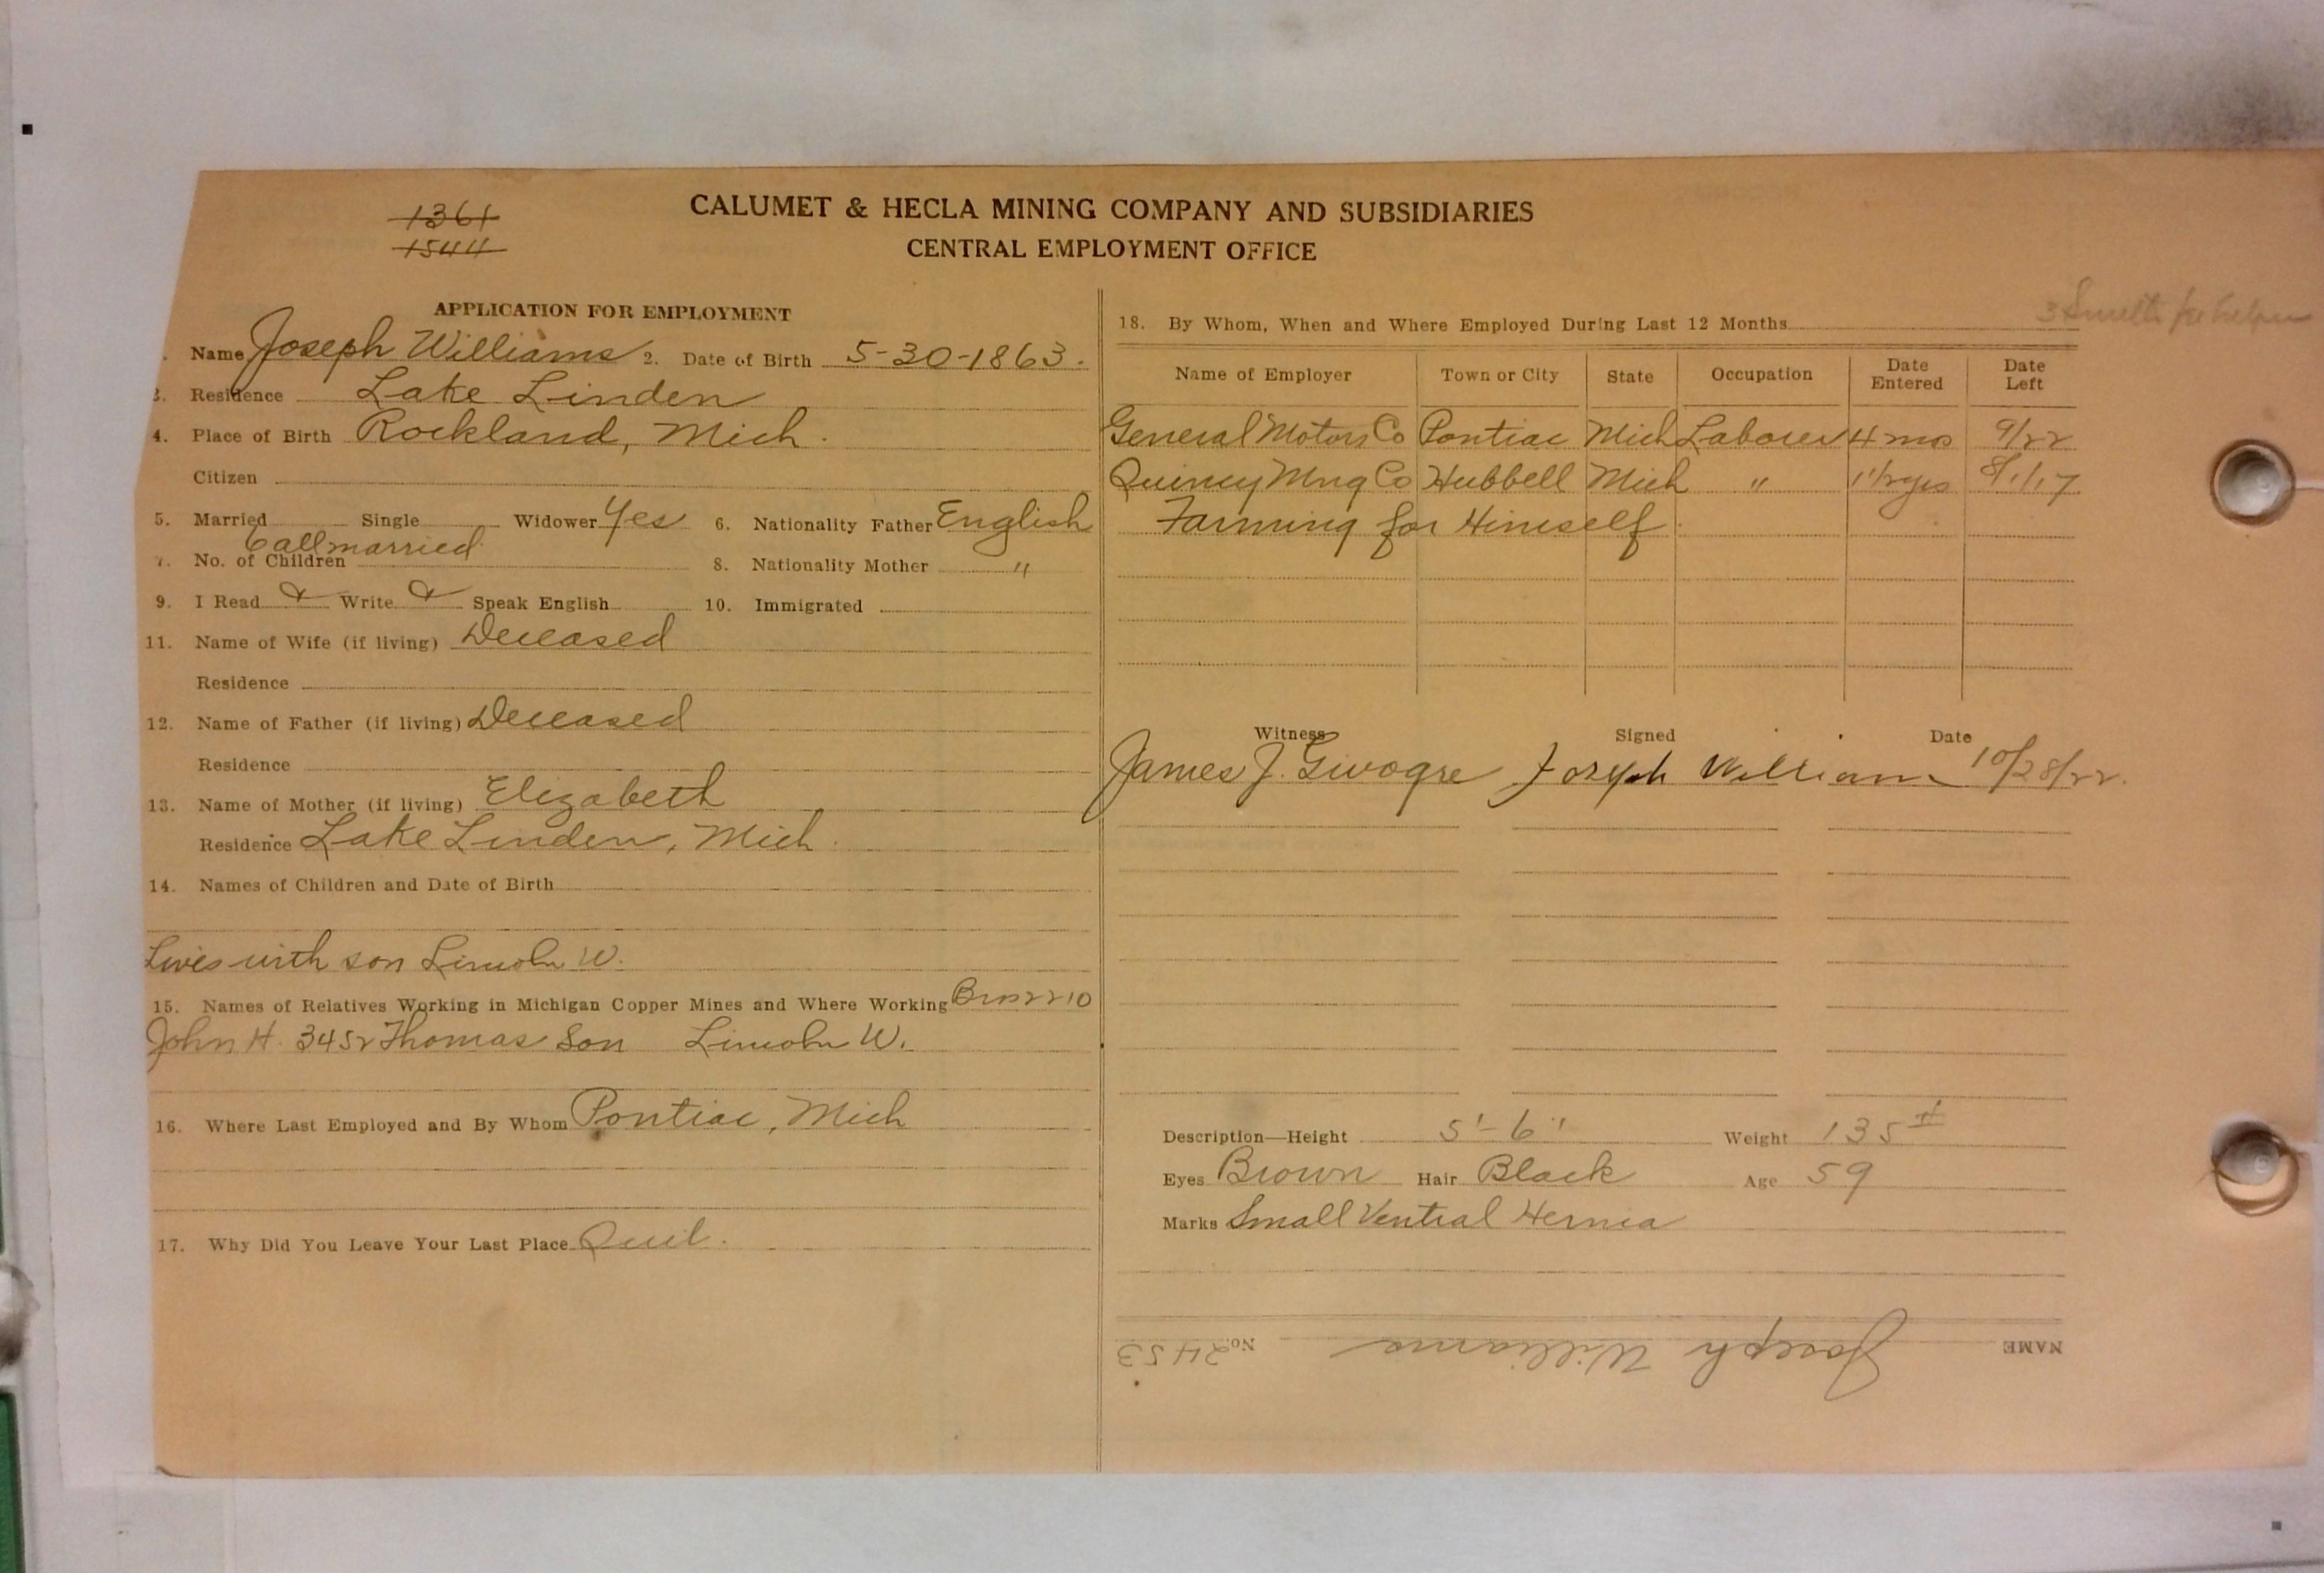 1361
1544
CALUMET & HECLA MINING COMPANY AND SUBSIDIARIES
CENTRAL EMPLOYMENT OFFICE
APPLICATION FOR EMPLOYMENT
Name Joseph Williams 2. Date of Birth 5-30-1863.
3. Residence Lake Linden
4. Place of Birth Rockland, Mich.
Citizen
5. Married Single Widower Yes 6. Nationality Father English
6 all married
7. No. of Children 8. Nationality Mother "
9. I Read & Write & Speak English 10. Immigrated
11. Name of Wife (if living) Deceased
Residence
12. Name of Father (if living) Deceased
Residence
13. Name of Mother (if living) Elizabeth
Residence Lake Linden, Mich.
14. Names of Children and Date of Birth
Lives with son Lincoln W.
15. Names of Relatives Working in Michigan Copper Mines and Where Working 2210
John H. 3452 Thomas Son Lincoln W.
16. Where Last Employed and By Whom Pontiac, Mich
17. Why Did You Leave Your Last Place Quit.
3 Smelter helper
18. By Whom, When and Where Employed During Last 12 Months
Name of Employer Town or City State Occupation Date Entered Date Left
General Motors Co Pontiac Mich Laborer 4 mo 9/22
Quincy Mng Co Hubbell Mich " 1 1/2 yrs 8/1/17
Farming for Himself.
Witness Signed Date
James J. Joseph Williams 10/28/22.
Description—Height 5'-6" Weight 135#
Eyes Brown Hair Black Age 59
Marks Small Ventral Hernia
NAME Joseph Williams No. 2453